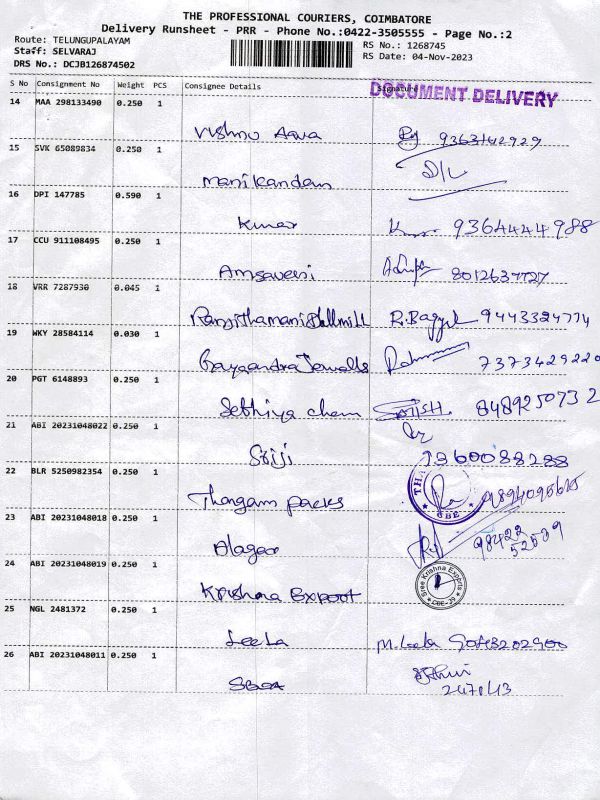 THE PROFESSIONAL COURIERS, COIMBATORE
Delivery Runsheet - PRR - Phone No.:0422-3505555 - Page No.:2
Route: TELUNGUPALAYAM
Staff: SELVARAJ
DRS No.: DCJB126874502
RS No.: 1268745
RS Date: 04-Nov-2023
S No Consignment No Weight PCS Consignee Details Signature
DOCUMENT DELIVERY
14 MAA 298133490 0.250 1
Vishnu Aqua 9363142929
15 SVK 65089834 0.250 1
Manikandan
16 DPI 147785 0.590 1
Kumar 9364444988
17 CCU 911108495 0.250 1
Amsaveni 8012637727
18 VRR 7287930 0.045 1
R. Bagya 9443324774
19 WKY 28584114 0.030 1
7373429220
20 PGT 6148893 0.250 1
Sebhiya chem 8489250732
21 ABI 20231048022 0.250 1
Sriji
22 BLR 5250982354 0.250 1
Thangam packs
23 ABI 20231048018 0.250 1
Alagar 98422
24 ABI 20231048019 0.250 1
Krishna Export
Sree Krishna Exports
CBE-39
25 NGL 2481372 0.250 1
Leela M. Leela
26 ABI 20231048011 0.250 1